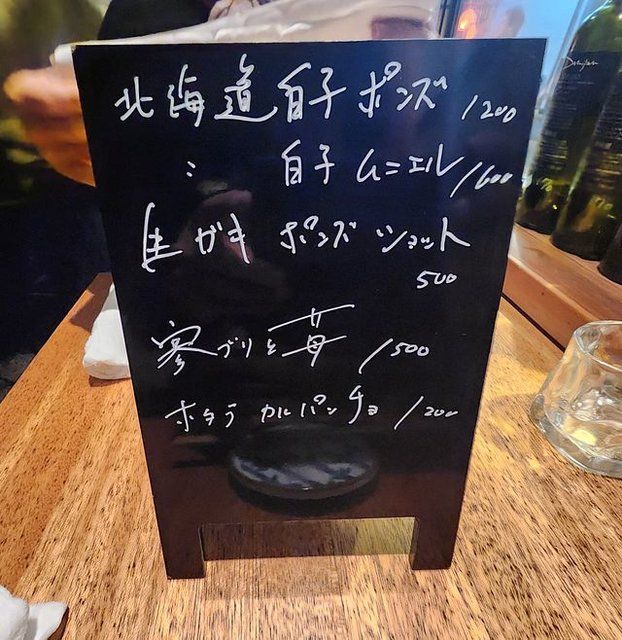 北海道白子ポンズ 1200
〃 白子ムニエル 1600
生ガキ ポンズ ショット
500
寒ブリと苺 1500
ホタテ カルパッチョ 1200